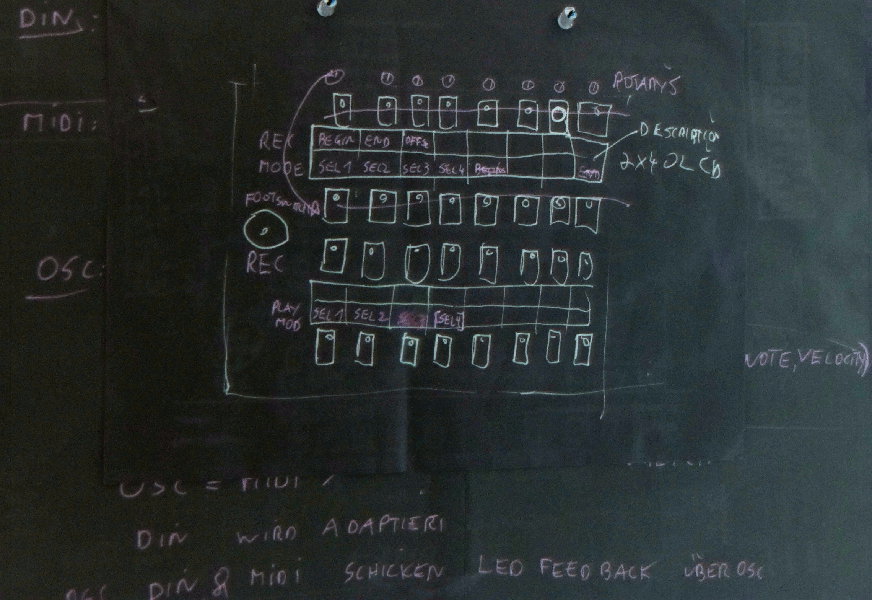 DIN:
MIDI:
OSC:
ROTARYS
REC MODE
BEGIN END OFFS
SEL1 SEL2 SEL3 SEL4 BEGIN
DESCRIPTION
2X40 LCD
REC
PLAY MOD
SEL1 SEL2 SEL4
NOTE, VELOCITY)
OSC = MIDI
DIN WIRD ADAPTIERT
OSC DIN & MIDI SCHICKEN LED FEEDBACK ÜBER OSC